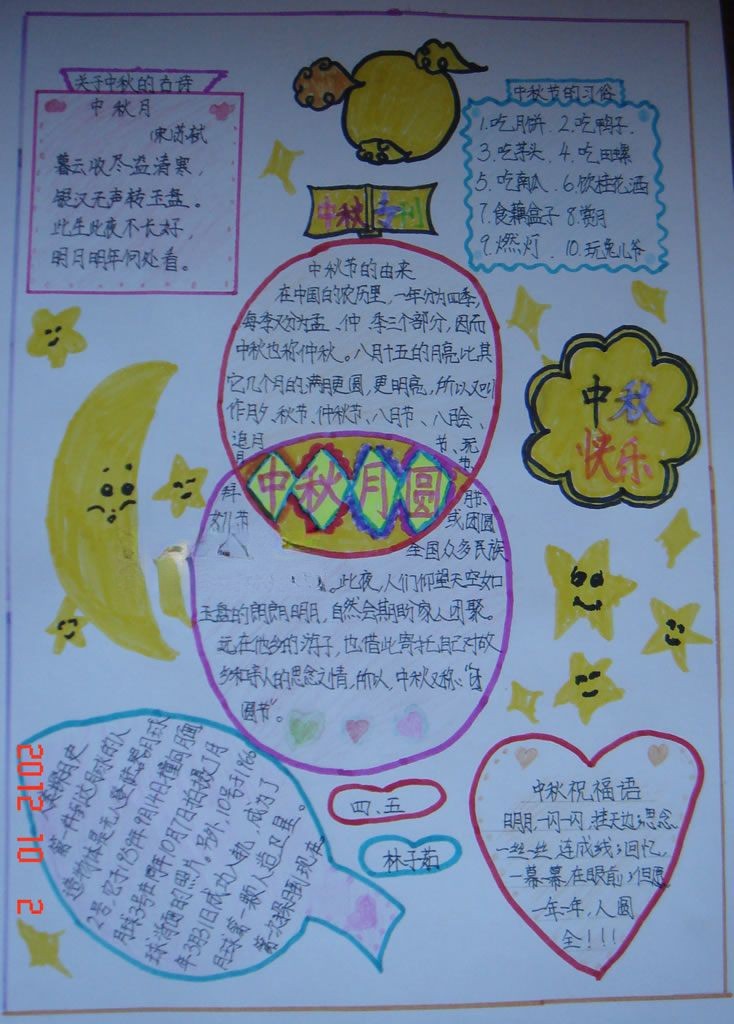 关于中秋的古诗
中秋月
宋苏轼
暮云收尽溢清寒，
银汉无声转玉盘。
此生此夜不长好，
明月明年何处看。
中秋专刊
中秋节的习俗
1.吃月饼 2.吃鸭子.
3.吃芋头 4.吃田螺
5.吃南瓜 6.饮桂花酒
7.食藕盒子 8.赏月
9.燃灯 10.玩兔儿爷
中秋节的由来
在中国的农历里，一年分为四季，
每季又分为孟、仲、季三个部分，因而
中秋也称仲秋。八月十五的月亮比其
它几个月的满月更圆，更明亮，所以又叫
作月夕、秋节、仲秋节、八月节、八月会、
追月 节、玩
月 节、
拜 月节、
女儿节 或团圆
全国众多民族
。此夜，人们仰望天空如
玉盘的朗朗明月，自然会期盼家人团聚。
远在他乡的游子，也借此寄托自己对故
乡和亲人的思念之情，所以，中秋又称“团
圆节”。
中秋月圆
中秋
快乐
人类探月史
第一件到达月球的人
造物体是无人登陆器月球
2号，它于1959年9月14日撞向月面
月球3号在同年10月7日拍摄了月
球背面的照片。另外，10号于1966
年3月31日成功入轨，成为了
月球第一颗人造卫星。
第一次探月到现在。
四、五
林子茹
中秋祝福语
明月，一闪一闪，挂天边；思念
一丝一丝，连成线；回忆，
一幕一幕，在眼前；但愿
一年一年，人圆
全！！！
2012 10 2